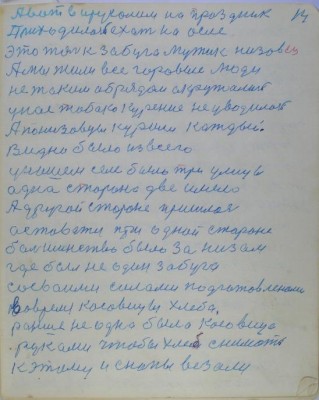 14
А вот в Иркулим на праздник
Приходилос ехат на осле.
Это так к забуга мужик низовец
А мы жили все горовые люди
не таким обрядам слружалост
у нас табака курение не уводилост
А по низовуи курили каждый.
Видно было из всего
у нашем селе было три улицы
одна сторона две имело
А другой стороне пришлос
оставати при одной стороне
болшинство было за низам
где был не один забуга
со своими силами подготовленами
Вовремя косовицы хлеба.
ранше не одна была косовица
руками чтобы хлеб снимать
к этому и снапы везали